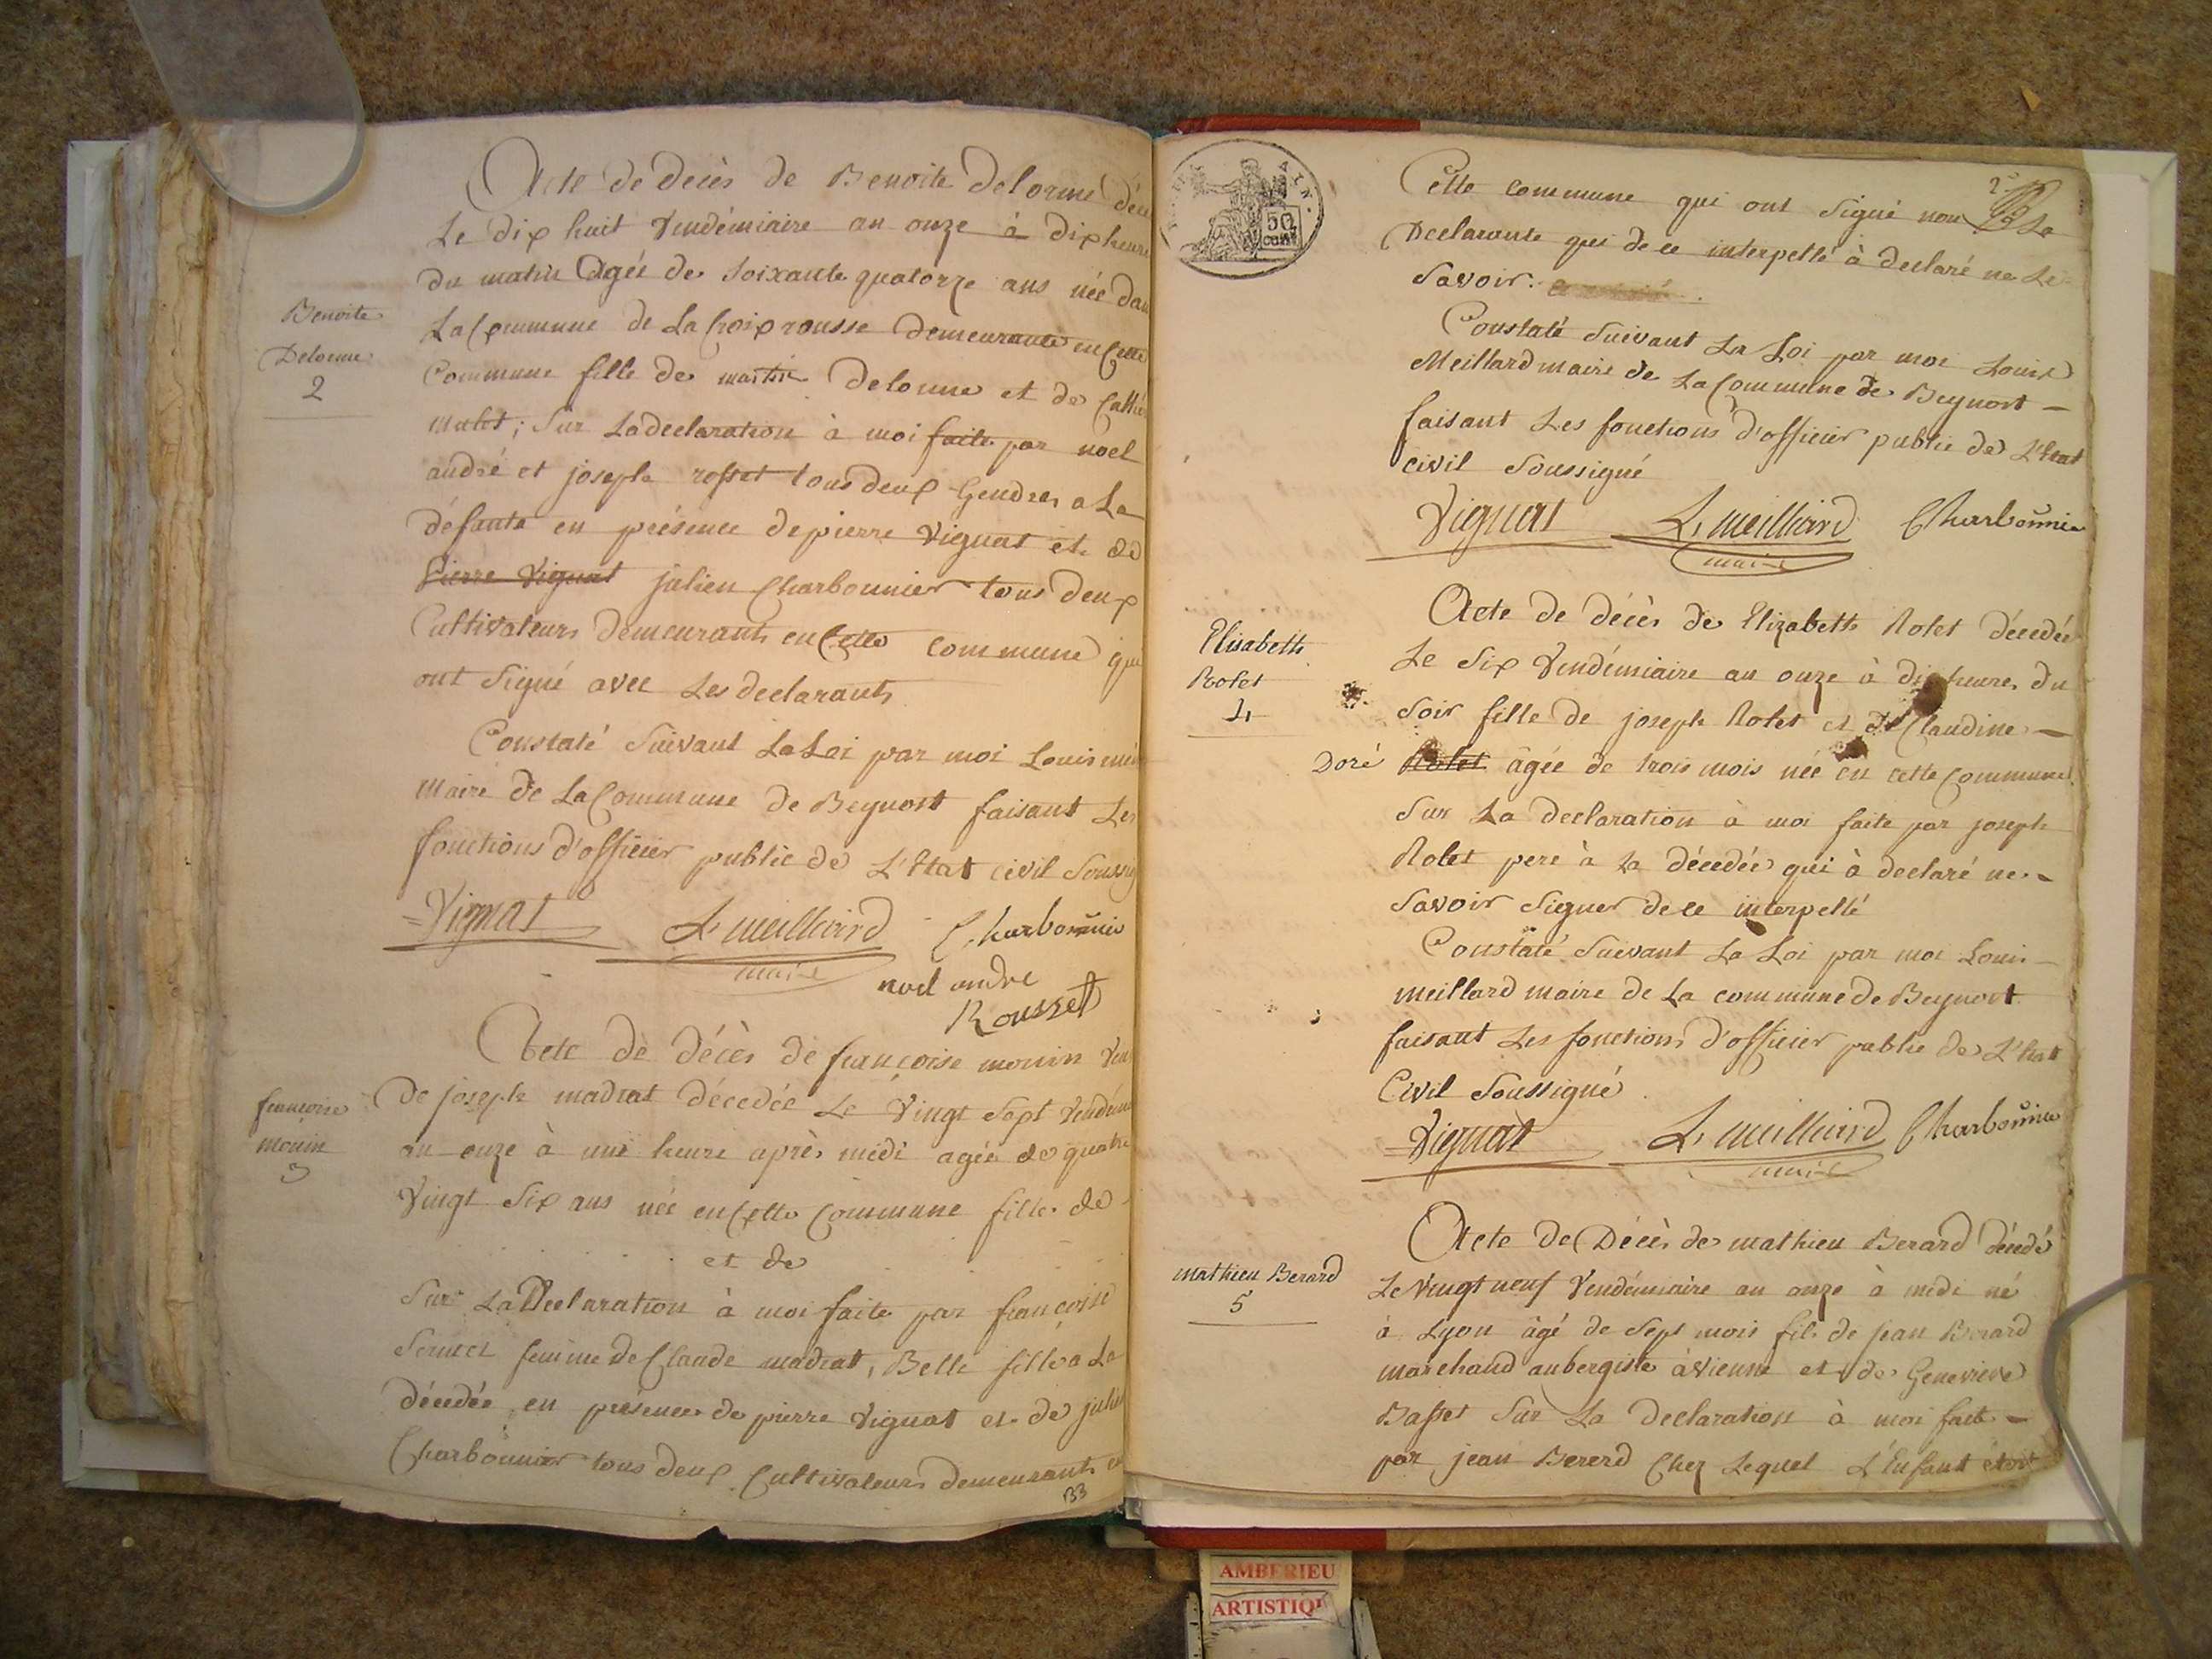 Acte de decès de Benoite delorme
Le dix huit Vendémiaire an onze à dix heures
du matin agée de soixante quatorze ans née dans
La Commune de La Croix rousse demeurante en Cette
Commune fille de martin delorme et de
mulet; Sur La declaration à moi faite par noel
andré et joseph rosset tous deux Gendres a La
défunte en présence de pierre Vignat et de
Pierre Vignat julien Charbonnier tous deux
Cultivateurs demeurants en Cette commune qui
ont Signé avec Les declarants
Constaté Suivant La Loi par moi Louis
maire de La Commune de Beynost faisant Les
fonctions d'officier public de L'Etat civil
Vignat L. meilliard Charbonnie
maire
noel andre
Rousset
Acte de décès de françoise monin
de joseph madrat décedée Le Vingt Sept
an onze à une heure après midi agée de quatre
Vingt Six ans née en Cette Commune fille de
et de
Sur La Declaration à moi faite par françoise
femme de Claude madrat, Belle fille a La
décedée en présence de pierre Vignat et de
Charbonnier tous deux Cultivateurs demeurants en
Benoite
Delorme
2
françoise
monin
3
AIN.
50
CENT
2e
Cette commune qui ont Signé non La
Declarante qui de ce interpellé à declaré ne Le
Savoir.
Constaté Suivant La Loi par moi Louis
Meillard maire de La Commune de Beynost
faisant Les fonctions d'officier public de L'Etat
civil Soussigné
Vignat L. meilliard Charbonnie
maire
Acte de décès de Elizabeth Rolet décedée
Le Six Vendémiaire an onze à dix heures du
Soir fille de joseph Rolet et de Claudine
Doré Rolet âgée de trois mois née en cette Commune
Sur La declaration à moi faite par joseph
Rolet pere à La décedée qui à declaré ne
Savoir Signer de ce interpellé
Constaté Suivant La Loi par moi Louis
meillard maire de La commune de Beynost
faisant Les fonctions d'officier public de L'Etat
Civil Soussigné
Vignat L. meilliard Charbonnie
maire
Acte de Décès de mathieu Berard décedé
Le Vingt neuf Vendémiaire an onze à midi né
à Lyon âgé de Sept mois fils de jean Berard
marchand aubergiste à Vienne et de Genevieve
Basset Sur La declaration à moi faite
par jean Bererd Chez Lequel L'Enfant étoit
Elisabeth
Rolet
4
mathieu Berard
5
AMBERIEU
ARTISTIQU